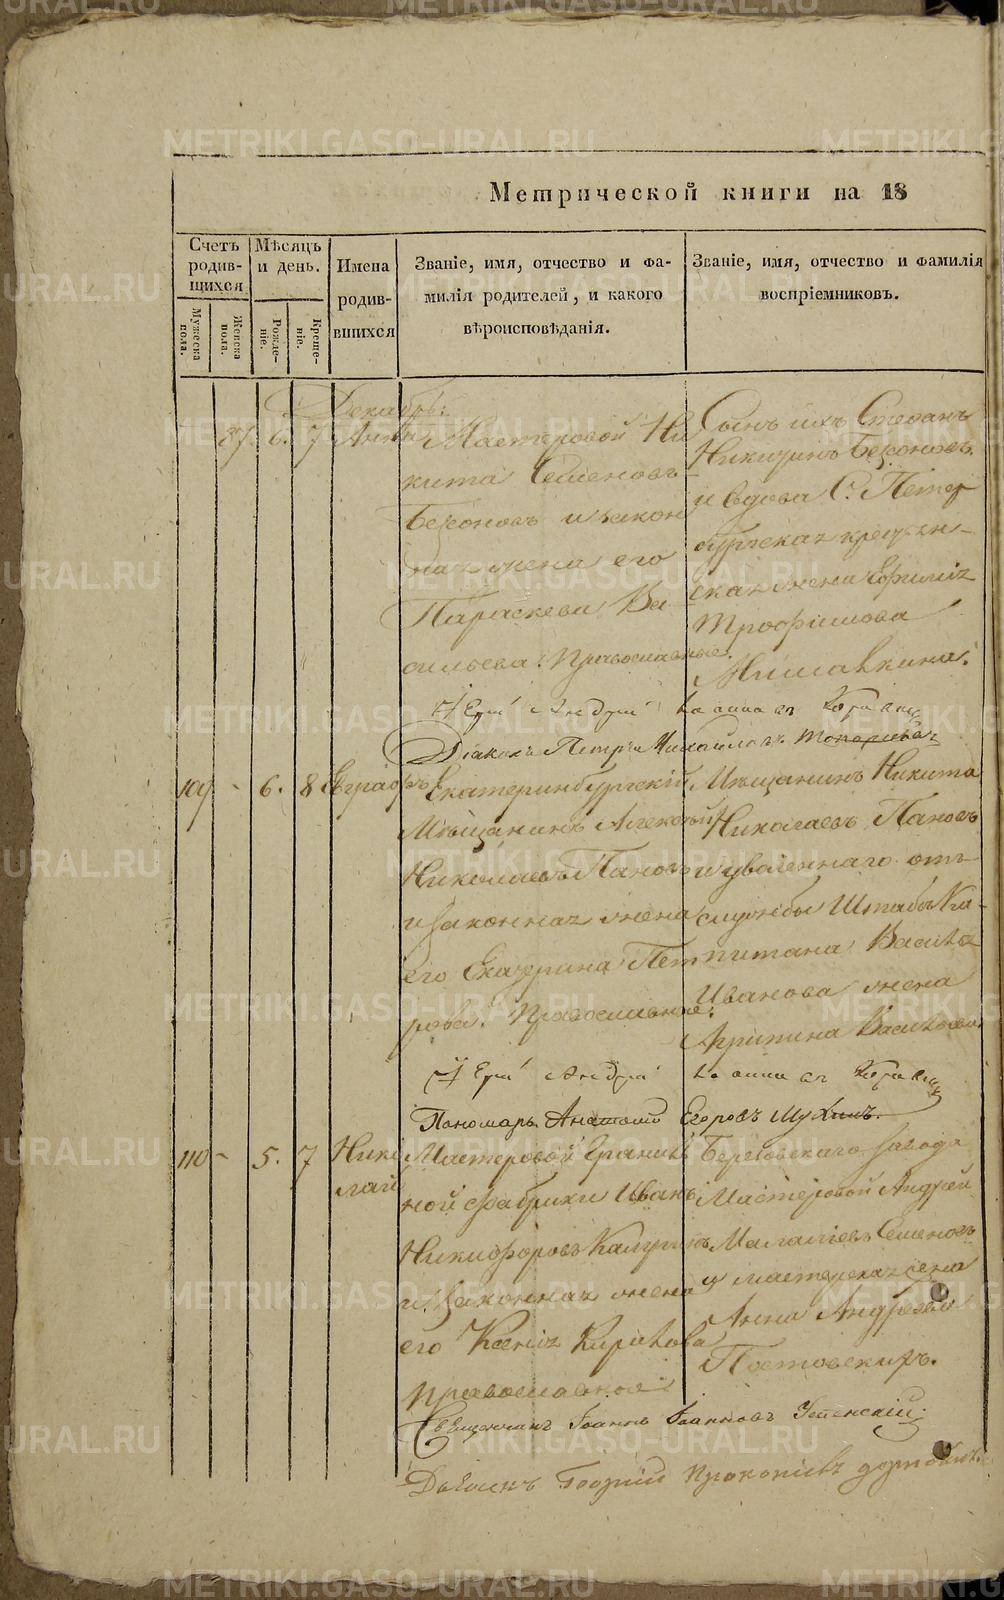 Метрической книги на 18
Счетъ родив-щихся
Мѣсяцъ и день.
Имена родив-вшихся
Званіе, имя, отчество и фа-
милія родителей, и какого
вѣроисповѣданія.
Званіе, имя, отчество и фамилія
воспріемниковъ.
Мужеска пола.
Женска пола.
Рожде-ніе.
Креще-ніе.
Декабрь:
6. 7 Анна
Мастеровой Ни
кита Семеновъ
и закон
ная жена его
Параскева Ва
сильева. Православные.
Сынъ ихъ Стефанъ
Никитинъ
и вдова С. Петер
бургская
жена
Трофимова
Іерей Андрей
Діаконъ Петръ Михайловъ Топорковъ
109 - 6. 8 Евграфъ
Екатеринбургскій
Мѣщанинъ Алексѣй
Николаевъ Пановъ
и законная жена
его Екатерина Пет
рова. Православные.
Мѣщанинъ Никита
Николаевъ Пановъ
и уволеннаго отъ
службы Штабсъ Ка-
питана Василья
Иванова жена
Агрипина Васильева
Іерей Андрей
Пономарь Анатолій Егоровъ Мухинъ.
110 - 5. 7 Нико
лай
Мастеровой Гранил
ной фабрики Иванъ
Никифоровъ
и законная жена
его Ксенія
Православные
Березовскаго завода
Мастеровой Андрей
Семеновъ
и мастерская жена
Анна Андреева
Священникъ Іоаннъ Іоанновъ Успенскій.
Діаконъ Георгій Прокопіевъ
METRIKI.GASO-URAL.RU